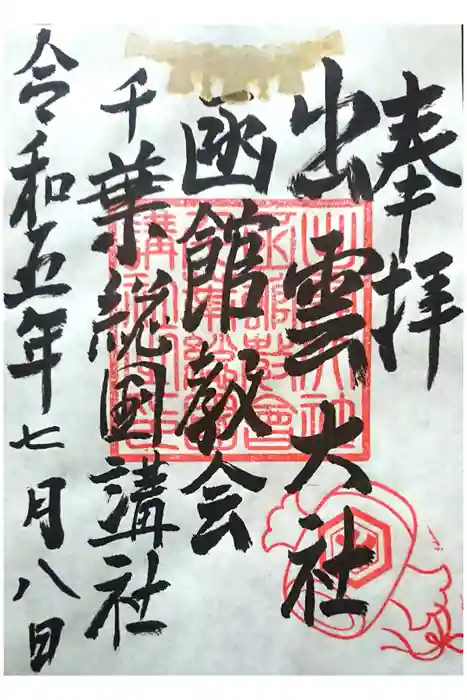 奉拝
出雲大社
函館教会
千葉統國講社
令和五年七月八日